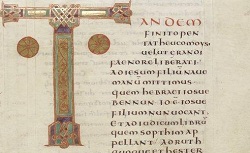 TANDEM
FINITO PEN
TATHEUCO MOYSI
UELUT GRANDI
FAENORE LIBERATI
AD IESUM FILIUM NAUE
MANUM MITTIMUS
QUEM HEBRAEI IOSUE
BENNUN ID E IOSUE
FILIUM NUN UOCANT
ET AD IUDICUM LIBRU
QUEM SOPTHIM AP
PELLANT AD RUTH
QUOQUE ET HESTER